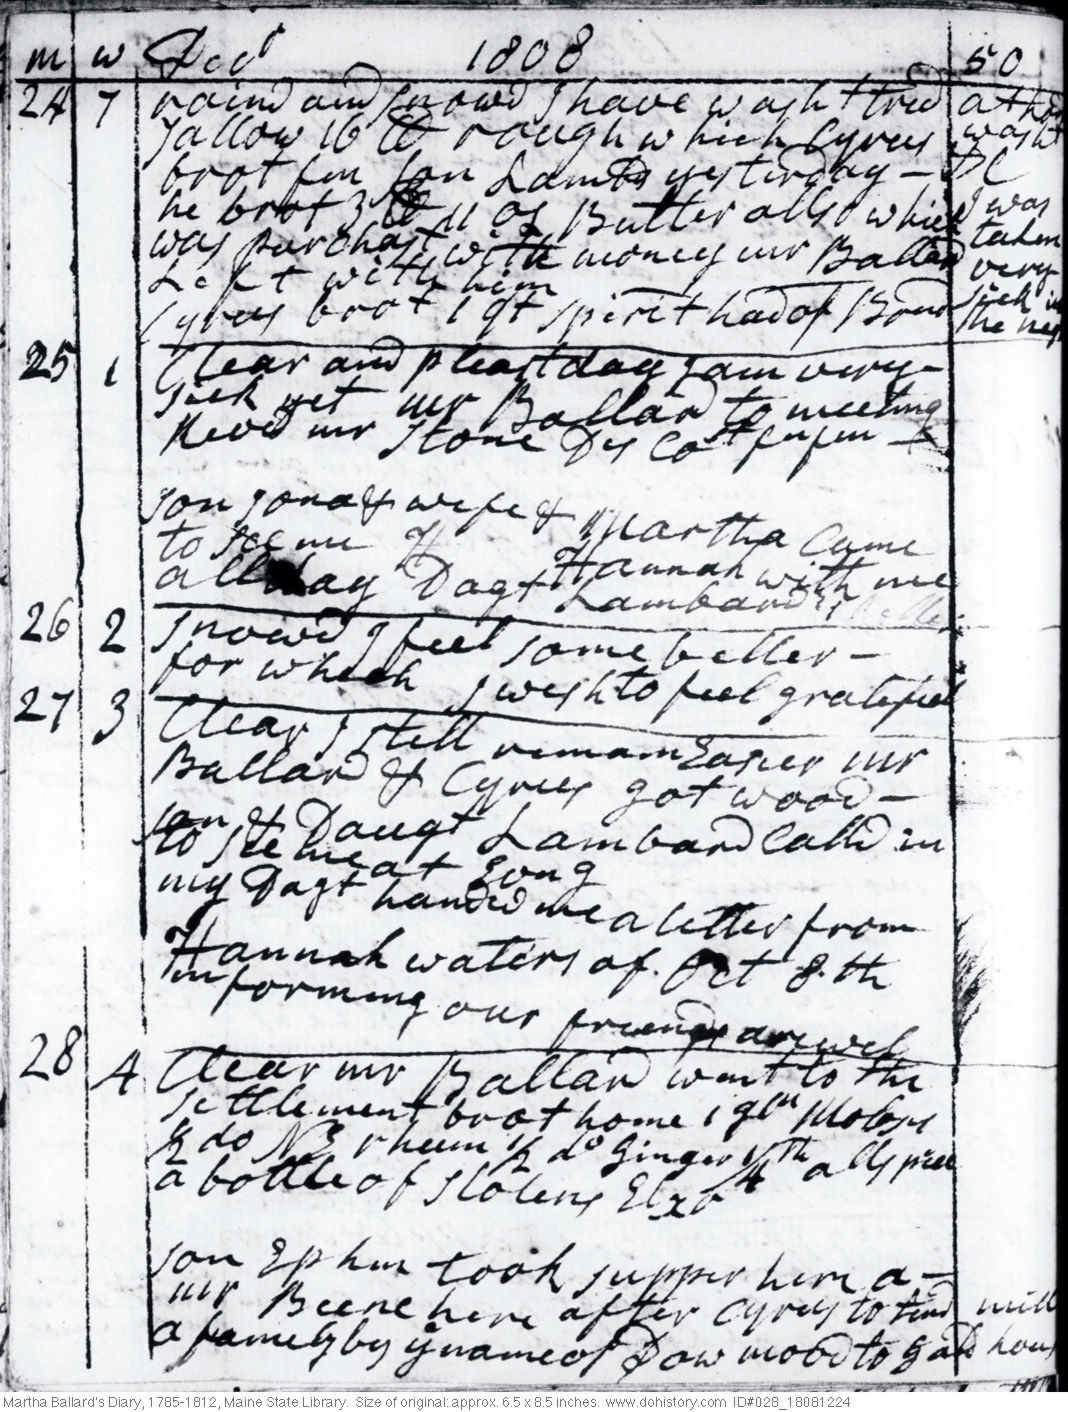 m w Decr 1808 50
24 7 raind and snowd I have washt tried at home
Tallow 16 lb rough which Cyrus washt
brot from son Lambds yesterday - &C
he brot 3 lb 11 oz Butter allso which I was
was purchast with money mr Ballard taken
Left with him very
Cyrus brot 1 qt spirit had of Brown sick in
the
25 1 Clear and pleast day I am very
sick yet mr Ballard to meeting
Revd mr Stone Dis Cost from
son Jona & wife & Martha Came
to see me Hannah with me
all day Dagt Lambard
26 2 snowd I feel some better -
for which I wish to feel gratefull
27 3 Clear I still remain Easier mr
Ballard & Cyrus got wood -
son & Daugt Lambard Calld in
to see me at Evng
my Dagt handed me a letter from
Hannah waters of Oct 8th
informing our friends are well
28 4 Clear mr Ballard went to the
settlement brot home 1 galn Molases
½ do N E rheum ½ do Ginger allspice
a bottle of Elxr
son Ephm took supper here a -
mr Beene here after Cyrus to tend mill
a famely by ye name of Dow moovd to hous
Martha Ballard's Diary, 1785-1812, Maine State Library. Size of original: approx. 6.5 x 8.5 inches. www.dohistory.com ID#028_18081224